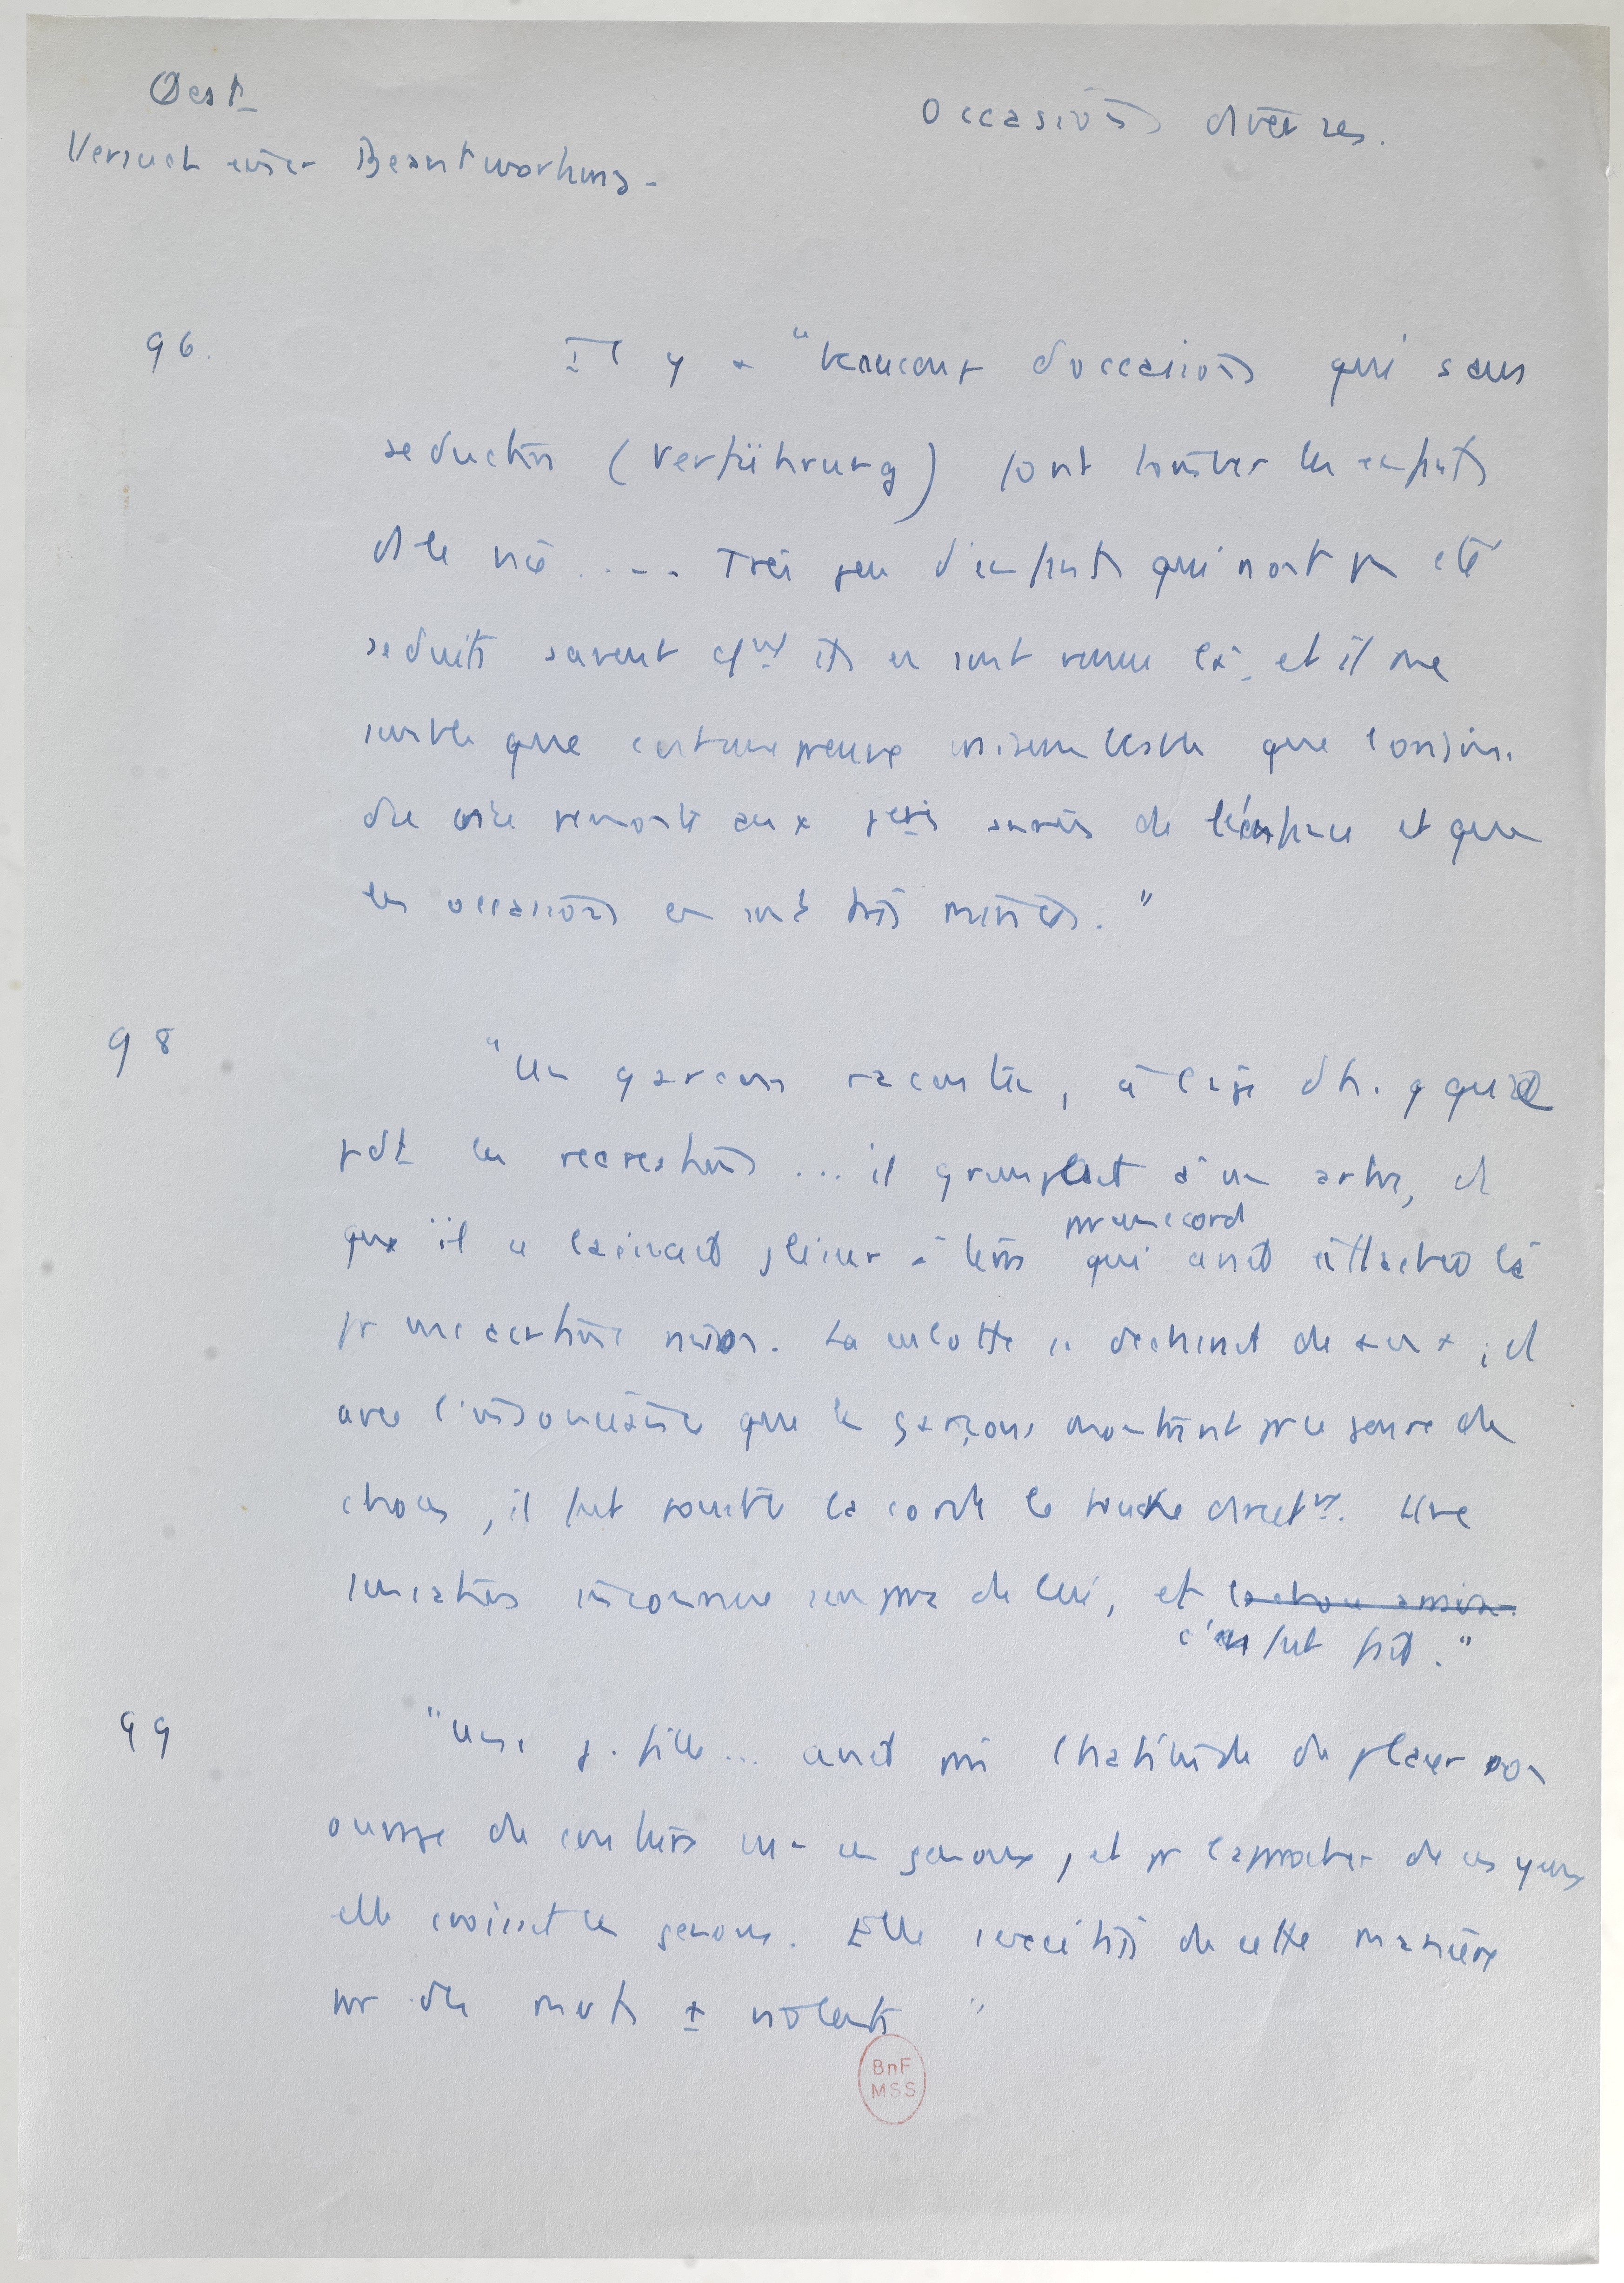 Oest
Versuch einer Beantwortung.
Occasions diverses.
96.
Il y a "beaucoup d'occasions qui sans
seduction (Verführung) font tomber les enfts
ds le vice .... Très peu d'enfants qui n'ont pas été
seduits savent cmt ils en sont venus là, et il me
semble que certaines preuves que l'origine
du vice remonte aux 1eres années de l'enfance et que
les occasions en sont très
98
"Un garçon raconte, à l'age d'h. que
pdt les recreations ... il grimpait à un arbre, et
que il se laissait glisser à terre par une corde qui avait été attachée là
pr une certaine raison. La culotte se dechirait de ; et
avec l'insouciance que les garçons montrent pr ce genre de
choses, il fut la corde le touche directt. Une
sensation inconnue s'empara de lui, et la chose
c'en fut fait."
99
"Une j. fille... avait pris l'habitude de placer son
ouvrage de couture sur ses genoux, et pr l'approcher de ses yeux
elle croisait les genoux. Elle de cette manière
par des mvts ± violents "
BnF
MSS